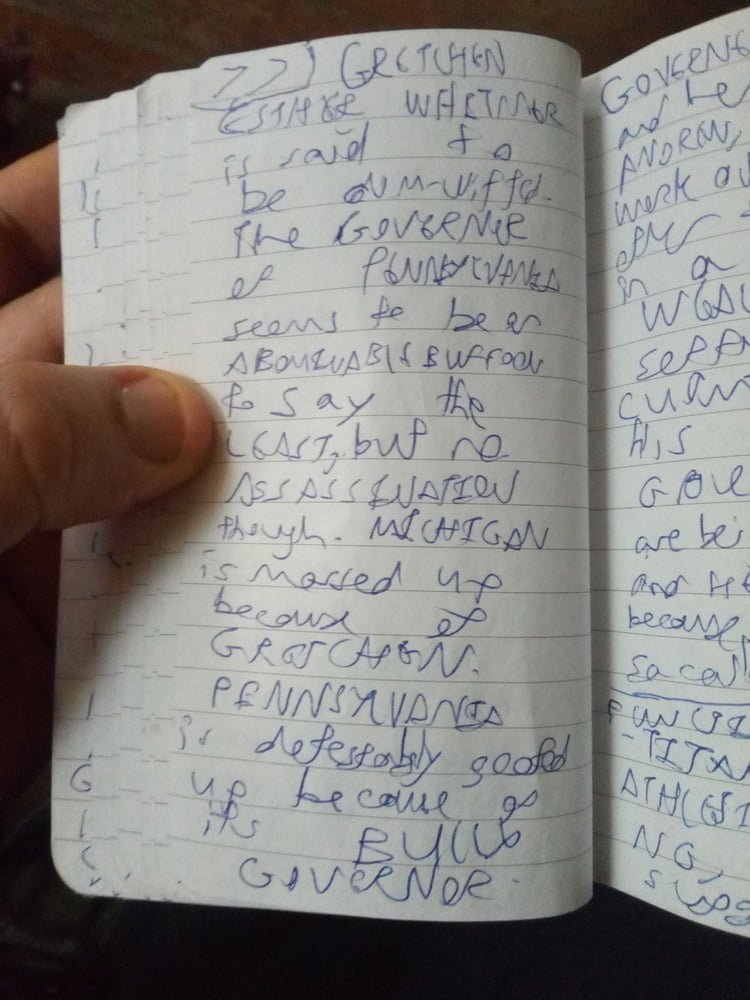 77) GRETCHEN
ESTHER WHITMER
is said to
be dum-witted.
The GOVERNER
of PENNSYLVANIA
seems to be an
ABOMINABLE BUFFOON
to say the
LEAST, but no
ASSASSINATION
though. MICHIGAN
is mossed up
because of
GRETCHEN.
PENNSYLVANIA
is detestably goofed
up because of
its
GOVERNOR.
GOVERNE
and he
ANDREW,
work
in a
HIS
are bei
and HE
because
so call